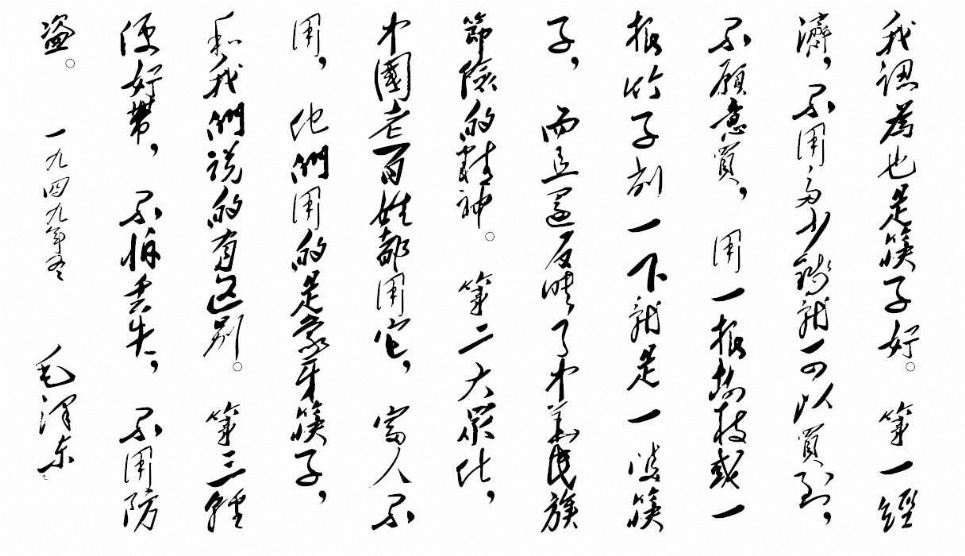 我認為也是筷子好。第一經
濟，不用多少錢就可以買到，
不願意買，用一根樹枝或一
根竹子削一下就是一雙筷
子，而且還反映了中華民族
節儉的精神。第二大眾化，
中國老百姓都用它，富人不
用，他們用的是象牙筷子，
和我們說的有区别。第三輕
便好帶，不怕丟失，不用防
盜。一九四九年冬 毛澤东